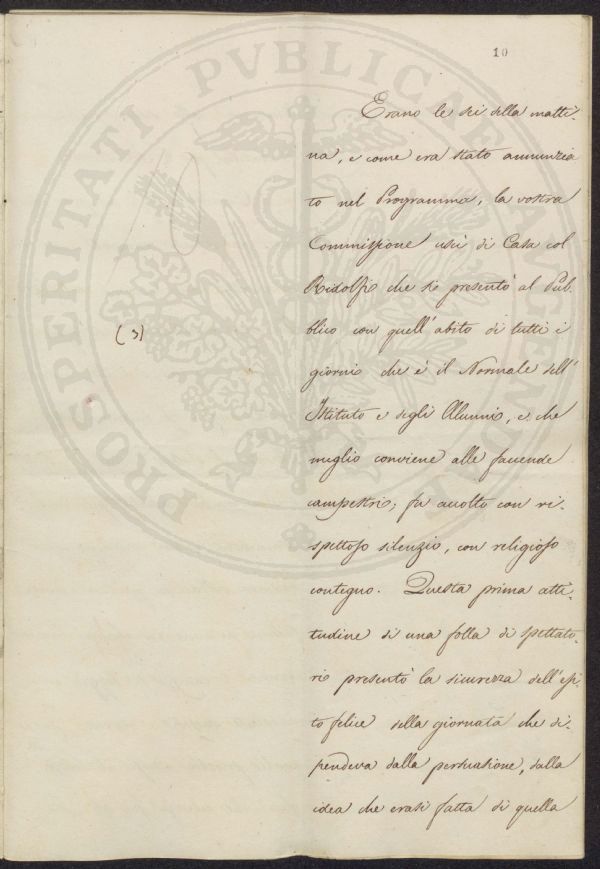 10
Erano le sei della matti-
na, e come era stato annunzia
to nel Programma, la vostra
Commissione uscì di Casa col
Ridolfi che si presentò al Pub-
blico con quell'abito di tutti i
giorni che è il Normale dell'
Istituto e degli Alunni, e che
meglio conviene alle faccende
campestri; fu accolto con ri-
spettoso silenzio, con religioso
contegno. Questa prima atti-
tudine di una folla di spettato-
ri presentò la sicurezza dell'esi-
to felice della giornata che di-
pendeva dalla persuasione, dalla
idea che erasi fatta di quella
(3)
PROSPERITATI PVBLICAE